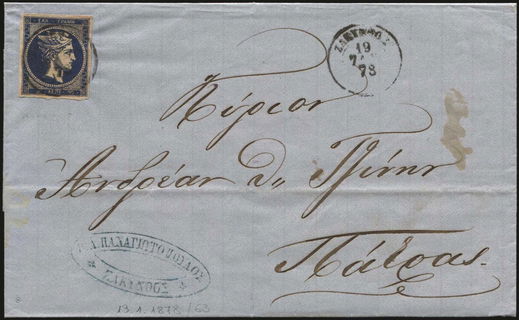 ΕΛΛ. ΓΡΑΜΜ.
ΖΑΚΥΝΘΟΣ
19
ΙΑΝ
78
Κύριον
Ανδρέαν Δ.
Πάτρας.
ΠΑΝΑΓΙΩΤΟΠΟΥΛΟΣ
ΖΑΚΥΝΘΟΣ
19.1.1878/63